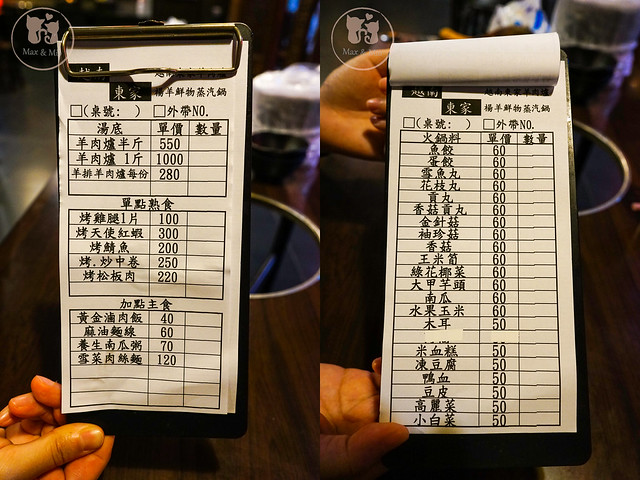 Max & M
東家 楊羊鮮物蒸汽鍋
□(桌號: ) □外帶NO.
湯底 單價 數量
羊肉爐半斤 550
羊肉爐 1斤 1000
羊排羊肉爐每份 280
單點熟食
烤雞腿1片 100
烤天使紅蝦 300
烤鯖魚 200
烤.炒中卷 250
烤松板肉 220
加點主食
黃金滷肉飯 40
麻油麵線 60
養生南瓜粥 70
雪菜肉絲麵 120
Max & M
越南 越南東家羊肉爐
東家 楊羊鮮物蒸汽鍋
□(桌號: ) □外帶NO.
火鍋料 單價 數量
魚餃 60
蛋餃 60
雪魚丸 60
花枝丸 60
貢丸 60
香菇貢丸 60
金針菇 60
袖珍菇 60
香菇 60
玉米筍 60
綠花椰菜 60
大甲芋頭 60
南瓜 60
水果玉米 60
木耳 50
米血糕 50
凍豆腐 50
鴨血 50
豆皮 50
高麗菜 50
小白菜 50